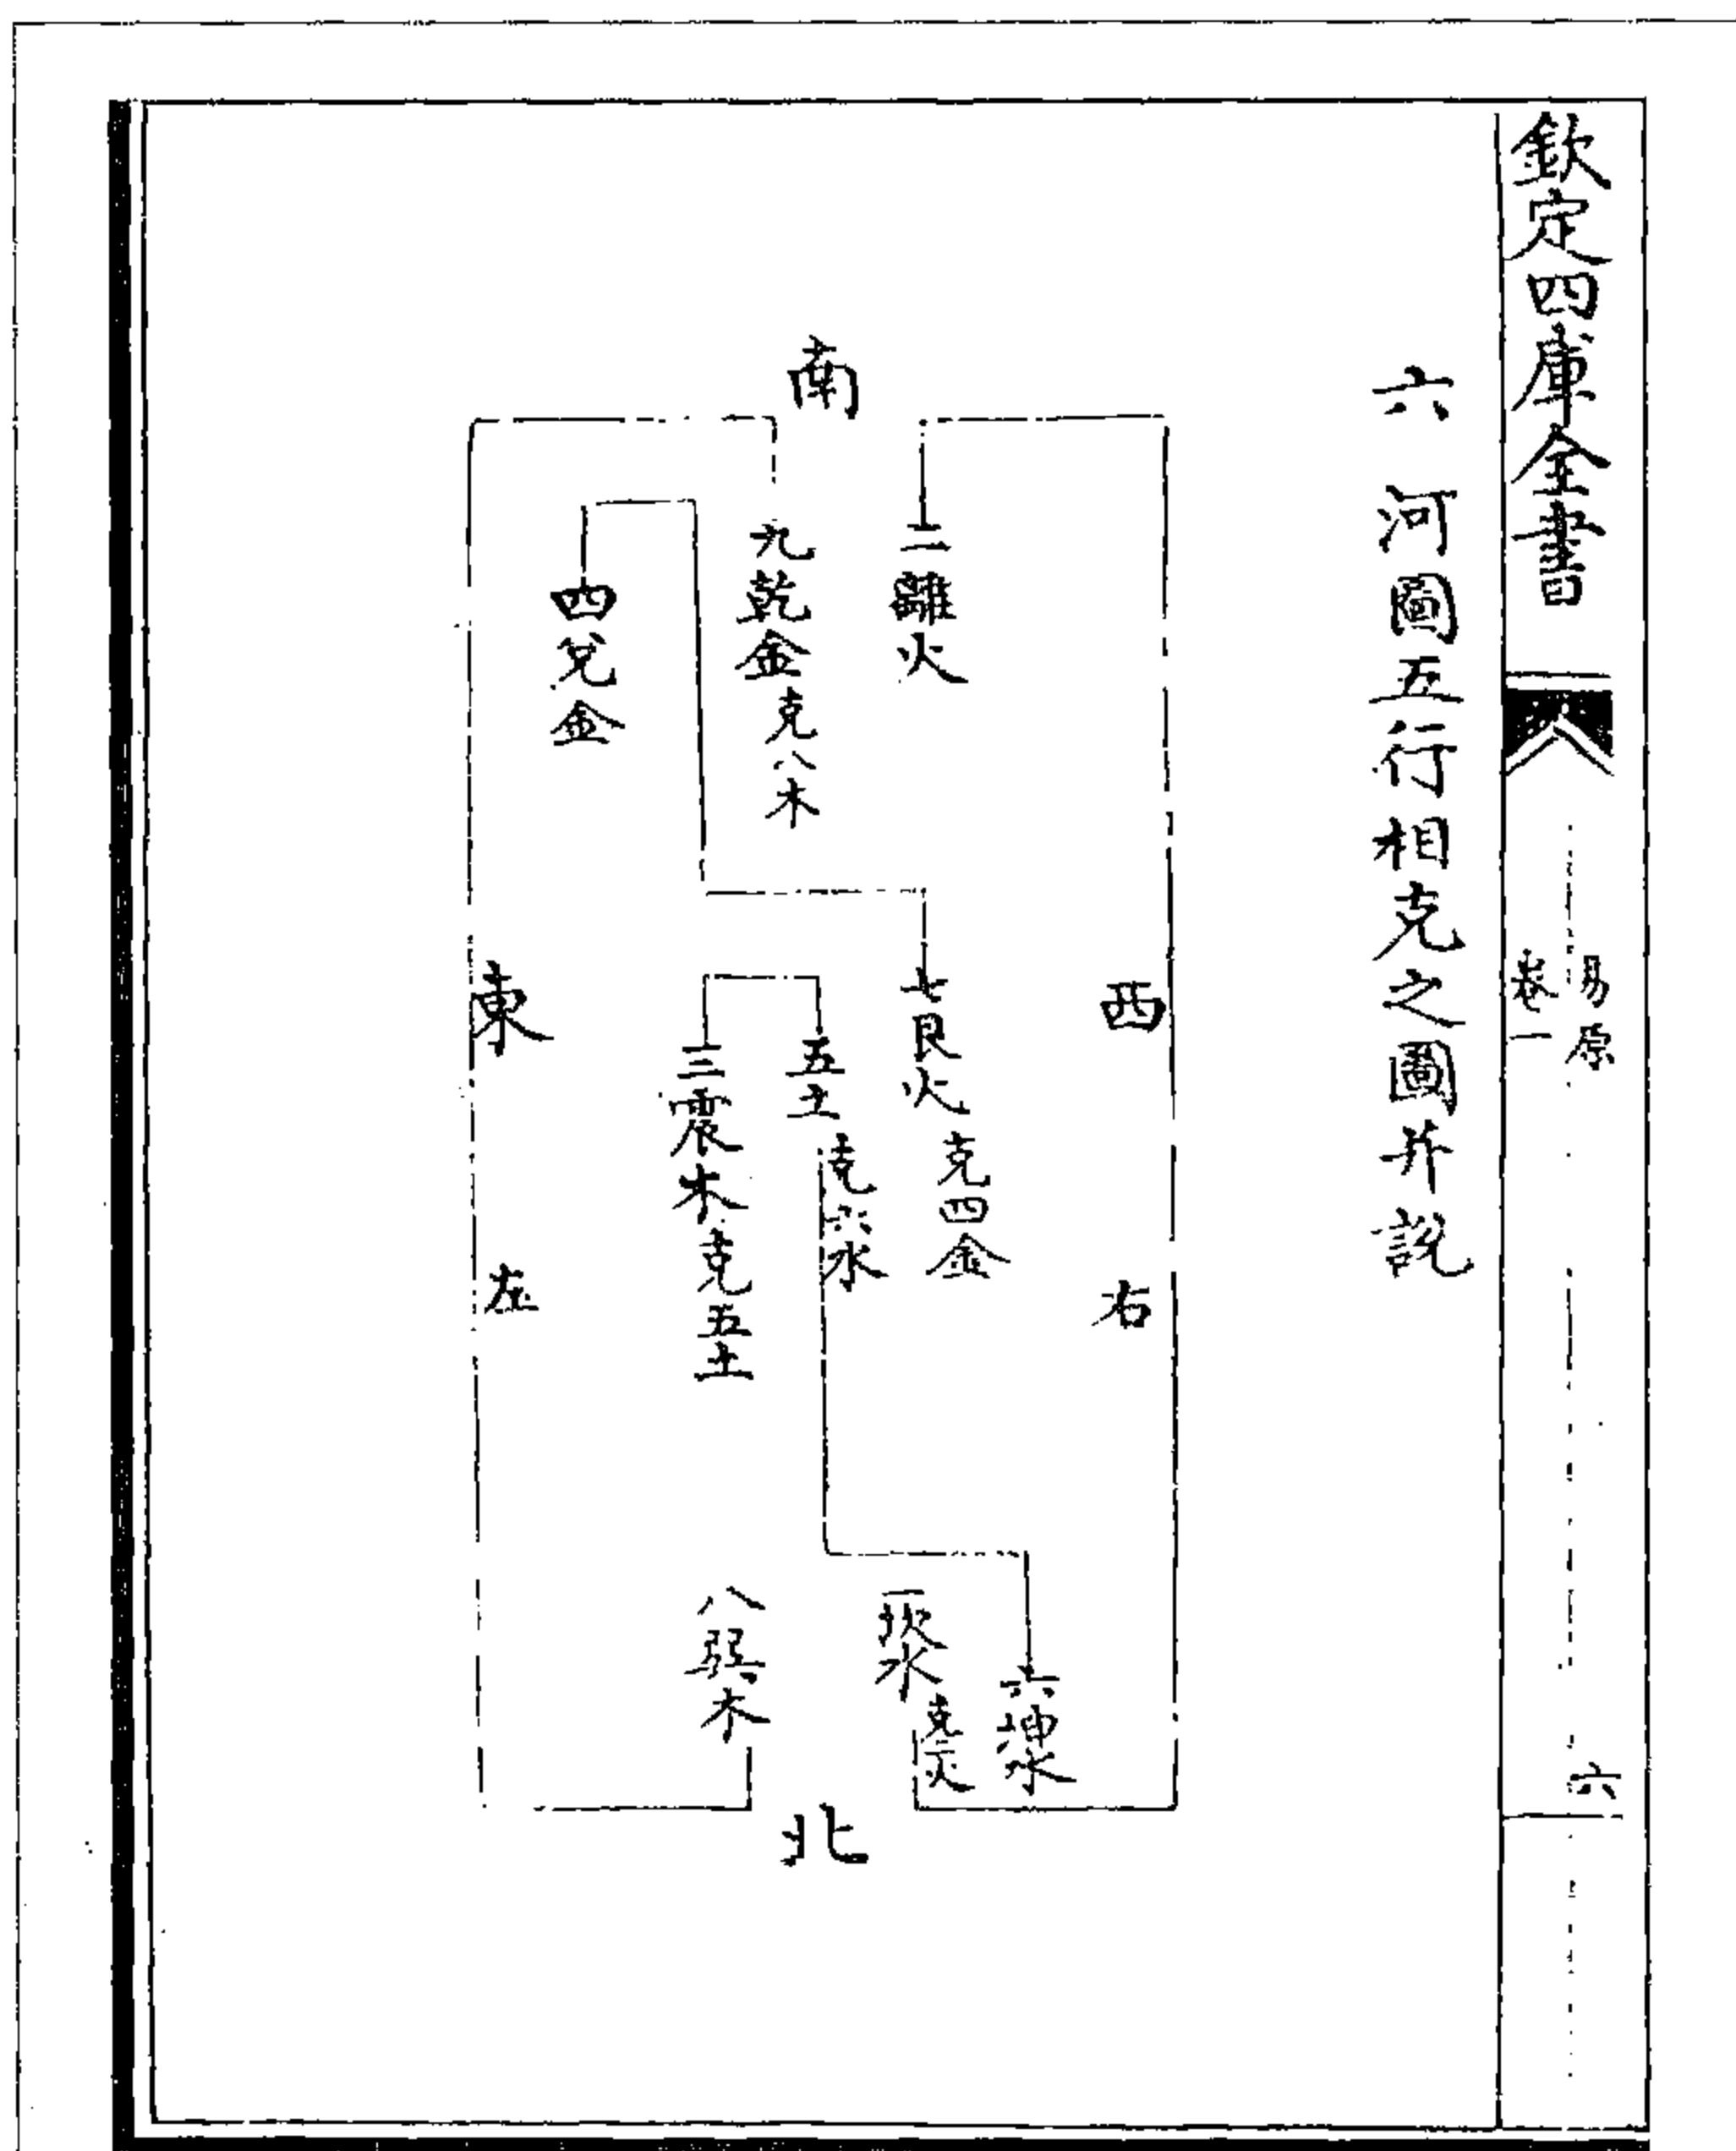 欽定四庫全書
易原
卷一
六
六 河圖五行相克之圖并說
南
二離火
九乾金克八木
四兌金
西
右
七艮火克四金
五土克六水
三震木克五土
東
左
六坤水
一坎水克二火
八巽木
北